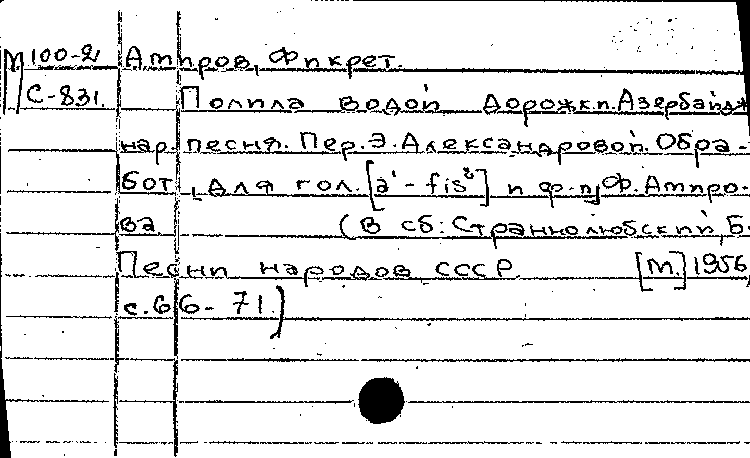 М 100-2 Амиров, Фикрет.
С-831. Полила водой дорожки. Азербайдж
нар. песня. Пер. Э. Александровой. Обра-
бот. для гол. [a¹ - fis²] и ф.-п. Ф. Амиро-
ва (В сб: Страннолюбский, Б.
Песни народов СССР [М.] 1956,
с. 66-71)